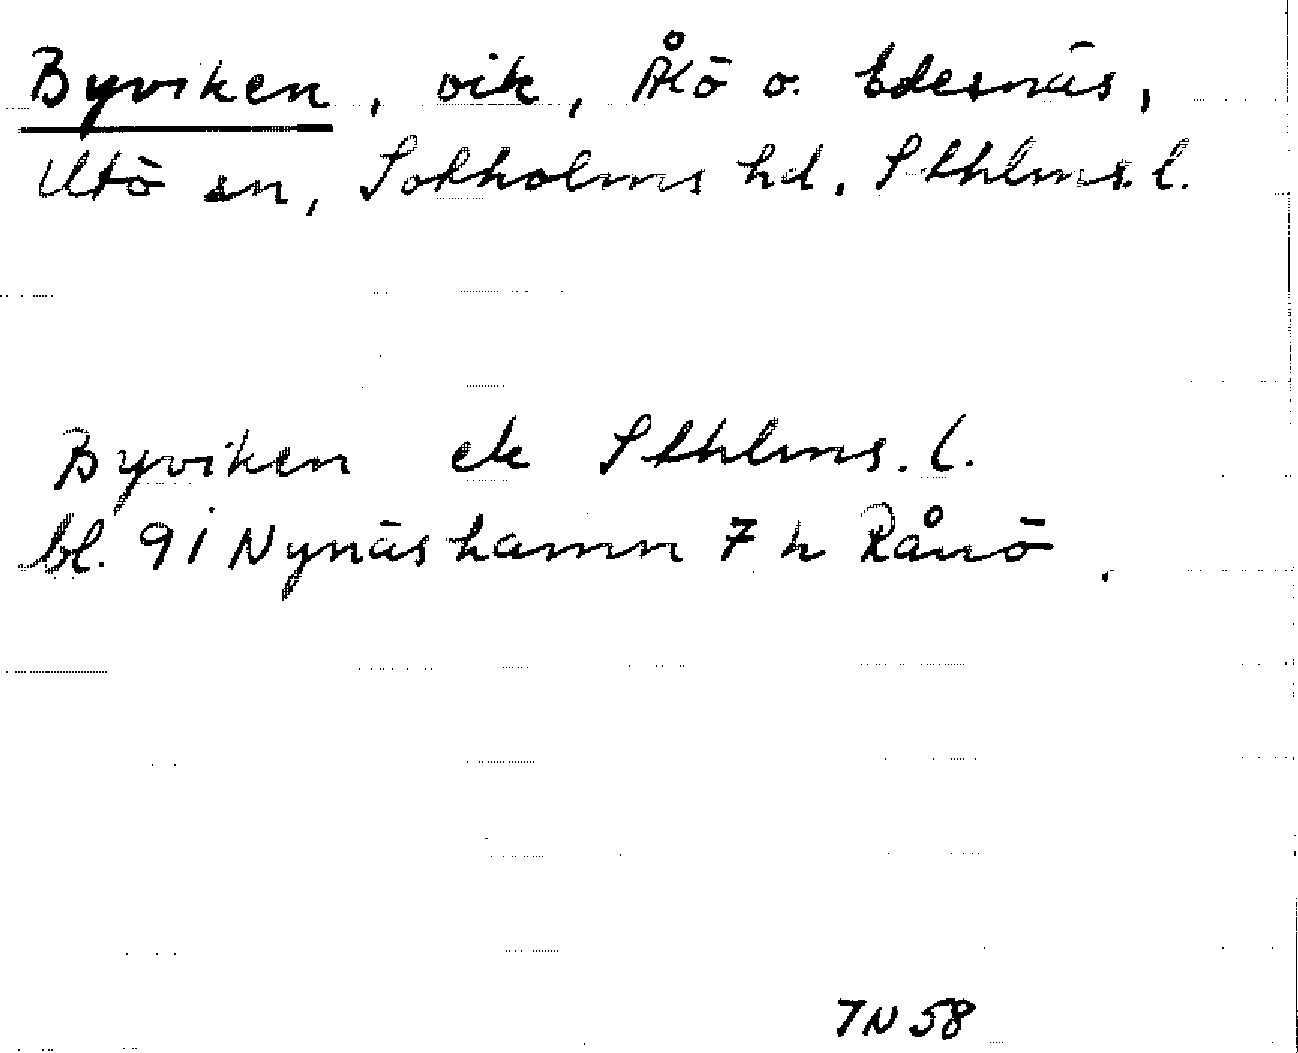 Byviken, vik, Ålö o. Edesnäs,
Utö sn, Sotholms hd. Sthlms. l.
Byviken ek Sthlms. l.
bl. 9 i Nynäshamn 7 h Rånö.
TN 58